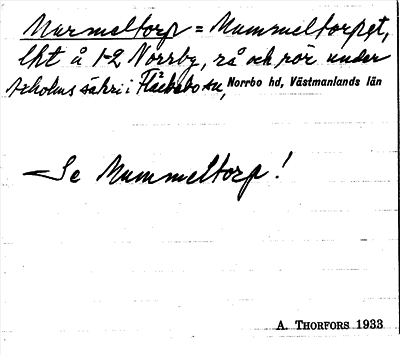 Murmeltorp = Mummeltorpet,
lht å 1-2 Norrby, rå och rör under
säteri i Fläckebo sn, Norrbo hd, Västmanlands län
Se Mummeltorp!
A. THORFORS 1933